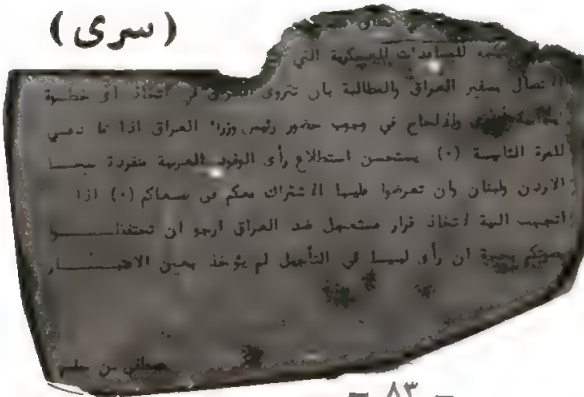 (سرى)
للمساعدات العسكرية التي
الاتصال بسفير العراق والمطالبة بان تتروى في اتخاذ أى خطوة
والالحاح في وجوب حضور رئيس وزراء العراق اذا ما دعي
للمرة الثانية (٠) يستحسن استطلاع رأى الوفود العربية منفردة سيما
الاردن ولبنان وان تعرضوا عليها الاشتراك معكم في مسعاكم (٠) اذا
اتجهت النية لاتخاذ قرار مستعجل ضد العراق ارجو ان تحتفظوا
بصوتكم بحجة ان رأى ليبيا في التأجيل لم يؤخذ بعين الاعتبار
مصطفى بن حليم
– ٨٣ –